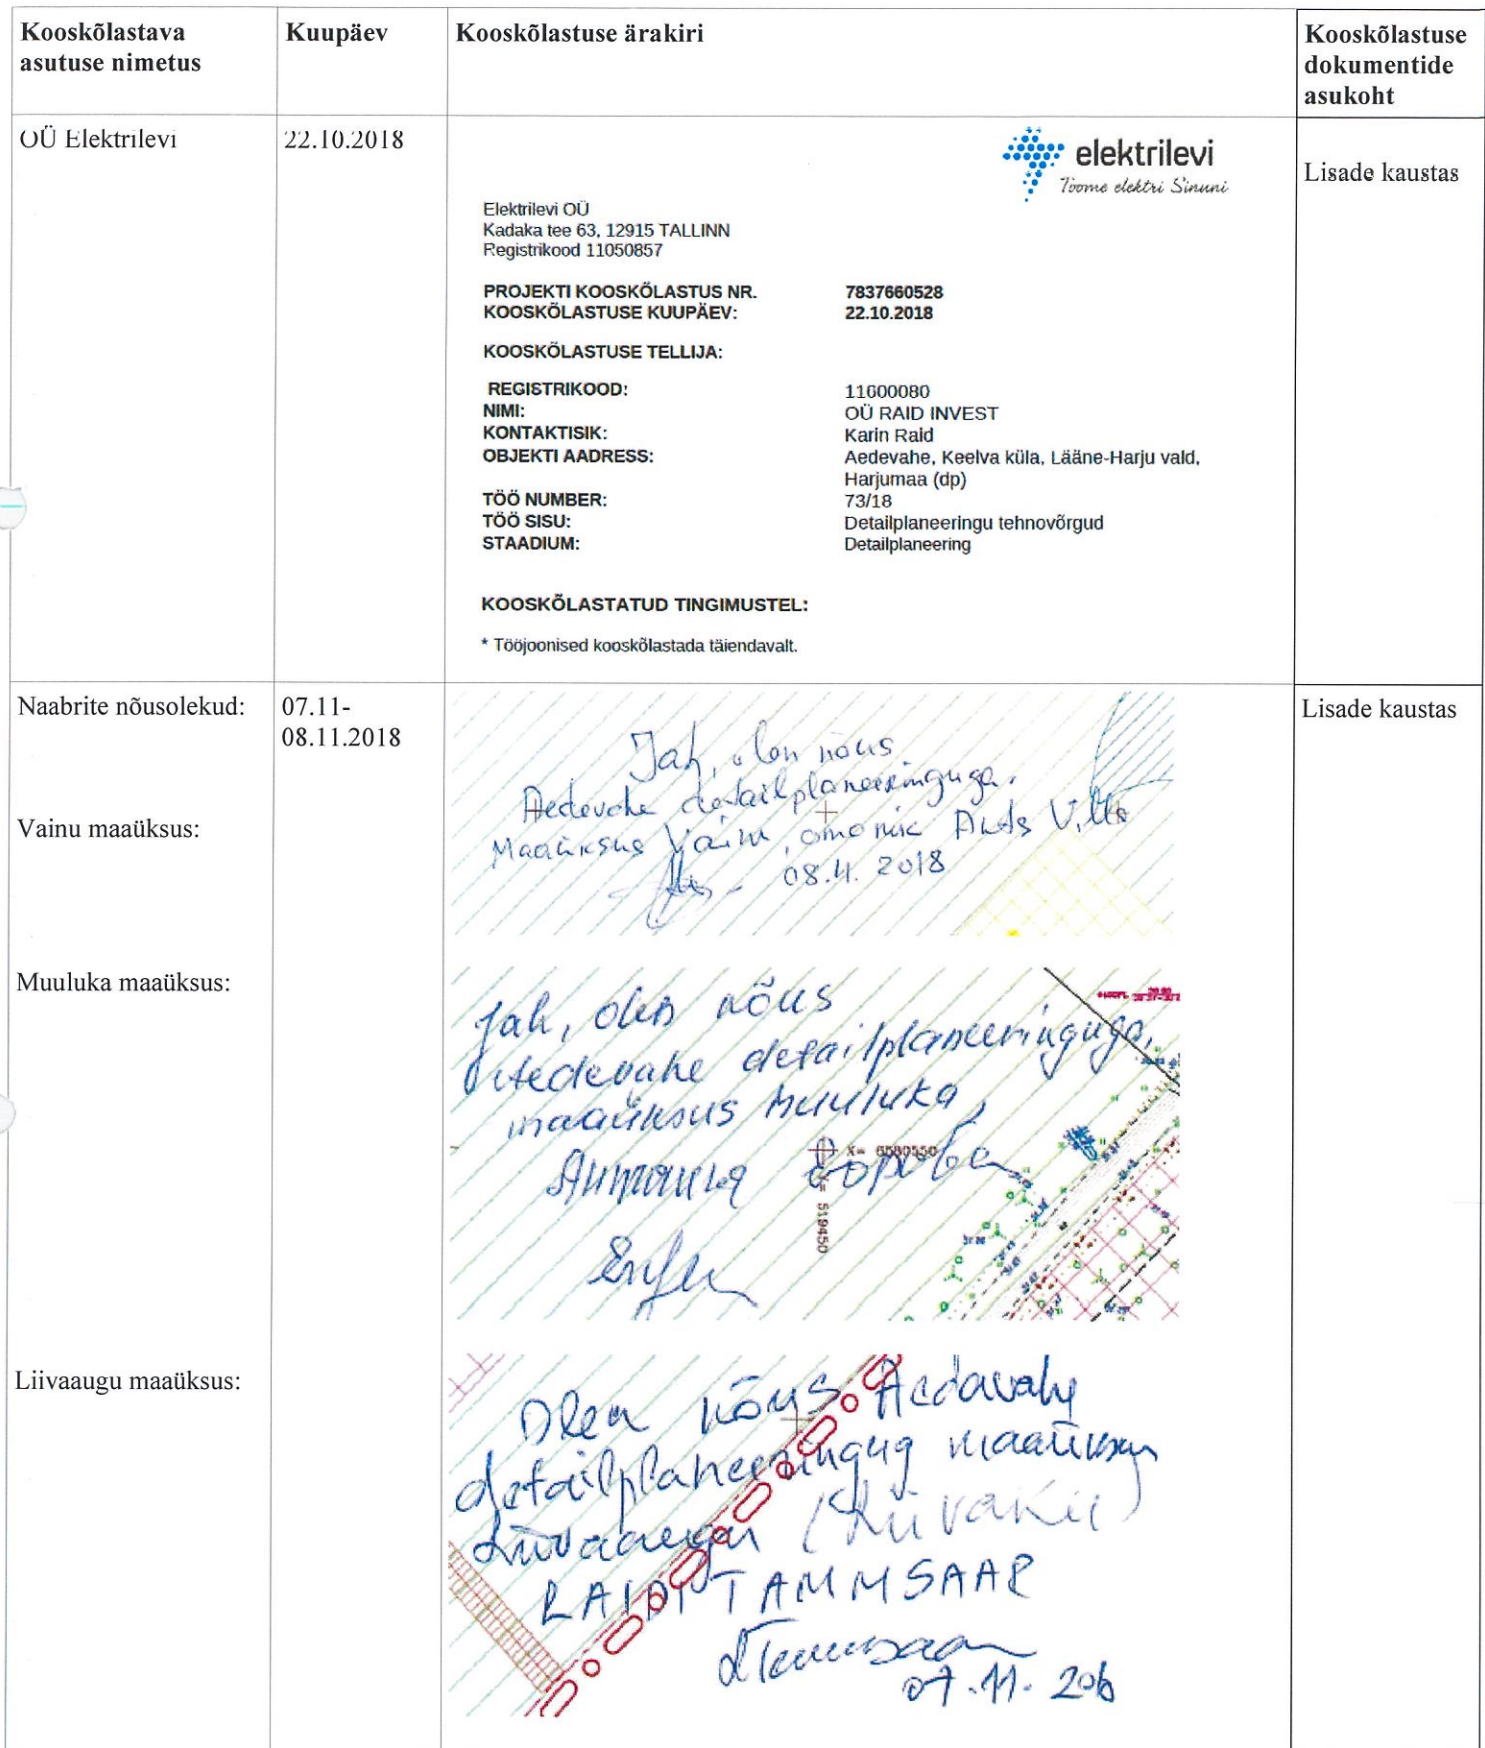 Kooskõlastava asutuse nimetus
Kuupäev
Kooskõlastuse ärakiri
Kooskõlastuse dokumentide asukoht
OÜ Elektrilevi
22.10.2018
elektrilevi
Toome elektri Sinuni
Lisade kaustas
Elektrilevi OÜ
Kadaka tee 63, 12915 TALLINN
Registrikood 11050857
PROJEKTI KOOSKÕLASTUS NR. 7837660528
KOOSKÕLASTUSE KUUPÄEV: 22.10.2018
KOOSKÕLASTUSE TELLIJA:
REGISTRIKOOD: 11600080
NIMI: OÜ RAID INVEST
KONTAKTISIK: Karin Raid
OBJEKTI AADRESS: Aedevahe, Keelva küla, Lääne-Harju vald,
Harjumaa (dp)
TÖÖ NUMBER: 73/18
TÖÖ SISU: Detailplaneeringu tehnovõrgud
STAADIUM: Detailplaneering
KOOSKÕLASTATUD TINGIMUSTEL:
* Tööjoonised kooskõlastada täiendavalt.
Naabrite nõusolekud:
07.11-
08.11.2018
Lisade kaustas
Vainu maaüksus:
Jah, olen nõus
Aedevahe detailplaneeringuga.
Maaüksus Vainu, omanik Ants
08.11.2018
Muuluka maaüksus:
Jah, olen nõus
Aedevahe detailplaneeringuga,
maaüksus Muuluka,
X= 6580550
519450
Liivaaugu maaüksus:
Olen nõus Aedavahe
detailplaneeringug maaüksus
Liivaaugu
RAIDI TAMMSAAR
07.11.